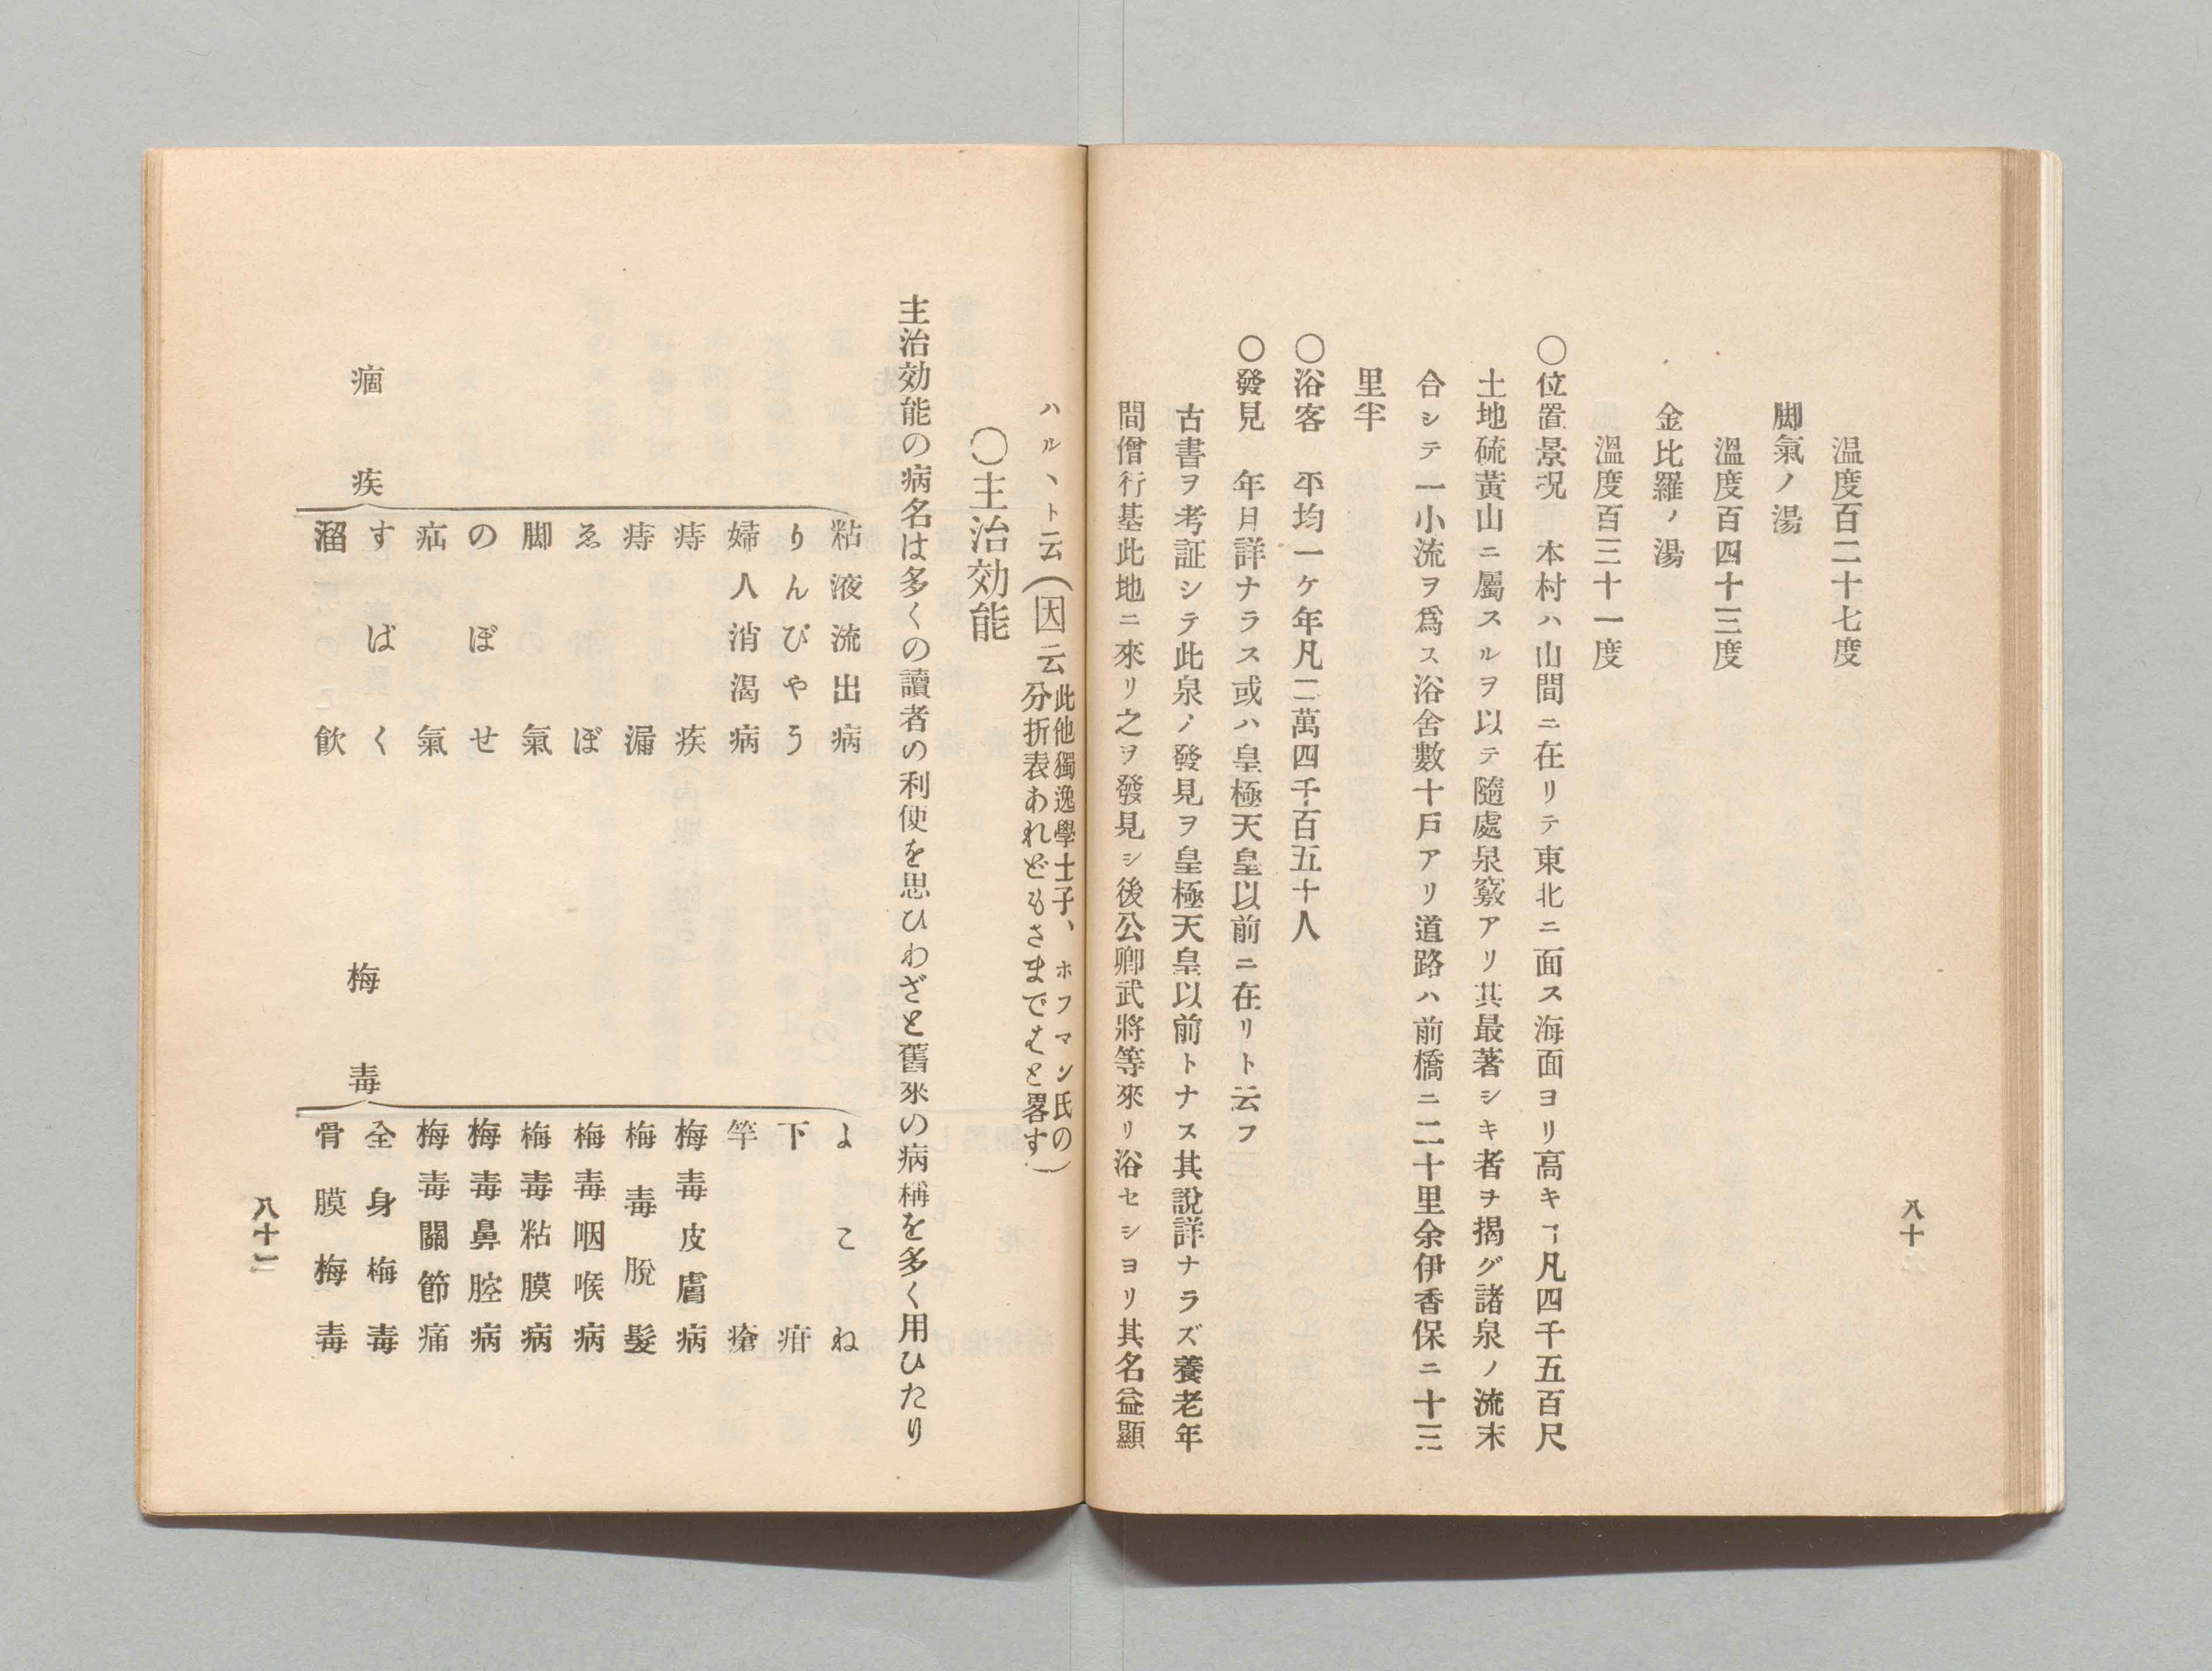 溫度百二十七度
脚氣ノ湯
溫度百四十三度
金比羅ノ湯
溫度百三十一度
〇位置景況　本村ハ山間ニ在リテ東北ニ面ス海面ヨリ高キヿ凡四千五百尺
土地硫黃山ニ屬スルヲ以テ隨處泉竅アリ其最著シキ者ヲ揭グ諸泉ノ流末
合シテ一小流ヲ爲ス浴舍數十戸アリ道路ハ前橋ニ二十里余伊香保ニ十三
里半
〇浴客　平均一ケ年凡二萬四千百五十人
〇發見　年月詳ナラス或ハ皇極天皇以前ニ在リト云フ
古書ヲ考証シテ此泉ノ發見ヲ皇極天皇以前トナス其說詳ナラズ養老年
間僧行基此地ニ來リ之ヲ發見シ後公卿武將等來リ浴セシヨリ其名益顯
八十
ハルヽト云（因云此他獨逸學士子、ホフマン氏の
分折表あれどもさまではと畧す）
〇主治効能
主治効能の病名は多くの讀者の利便を思ひわざと舊來の病稱を多く用ひたり
痼疾
粘液流出病
りんびやう
婦人消渴病
痔疾
痔漏
ゑぼ
脚氣
のぼせ
疝氣
すばく
溜飮
梅毒
よこね
下疳
竿瘡
梅毒皮膚病
梅毒脫髮
梅毒咽喉病
梅毒粘膜病
梅毒鼻腔病
梅毒關節痛
全身梅毒
骨膜梅毒
八十一